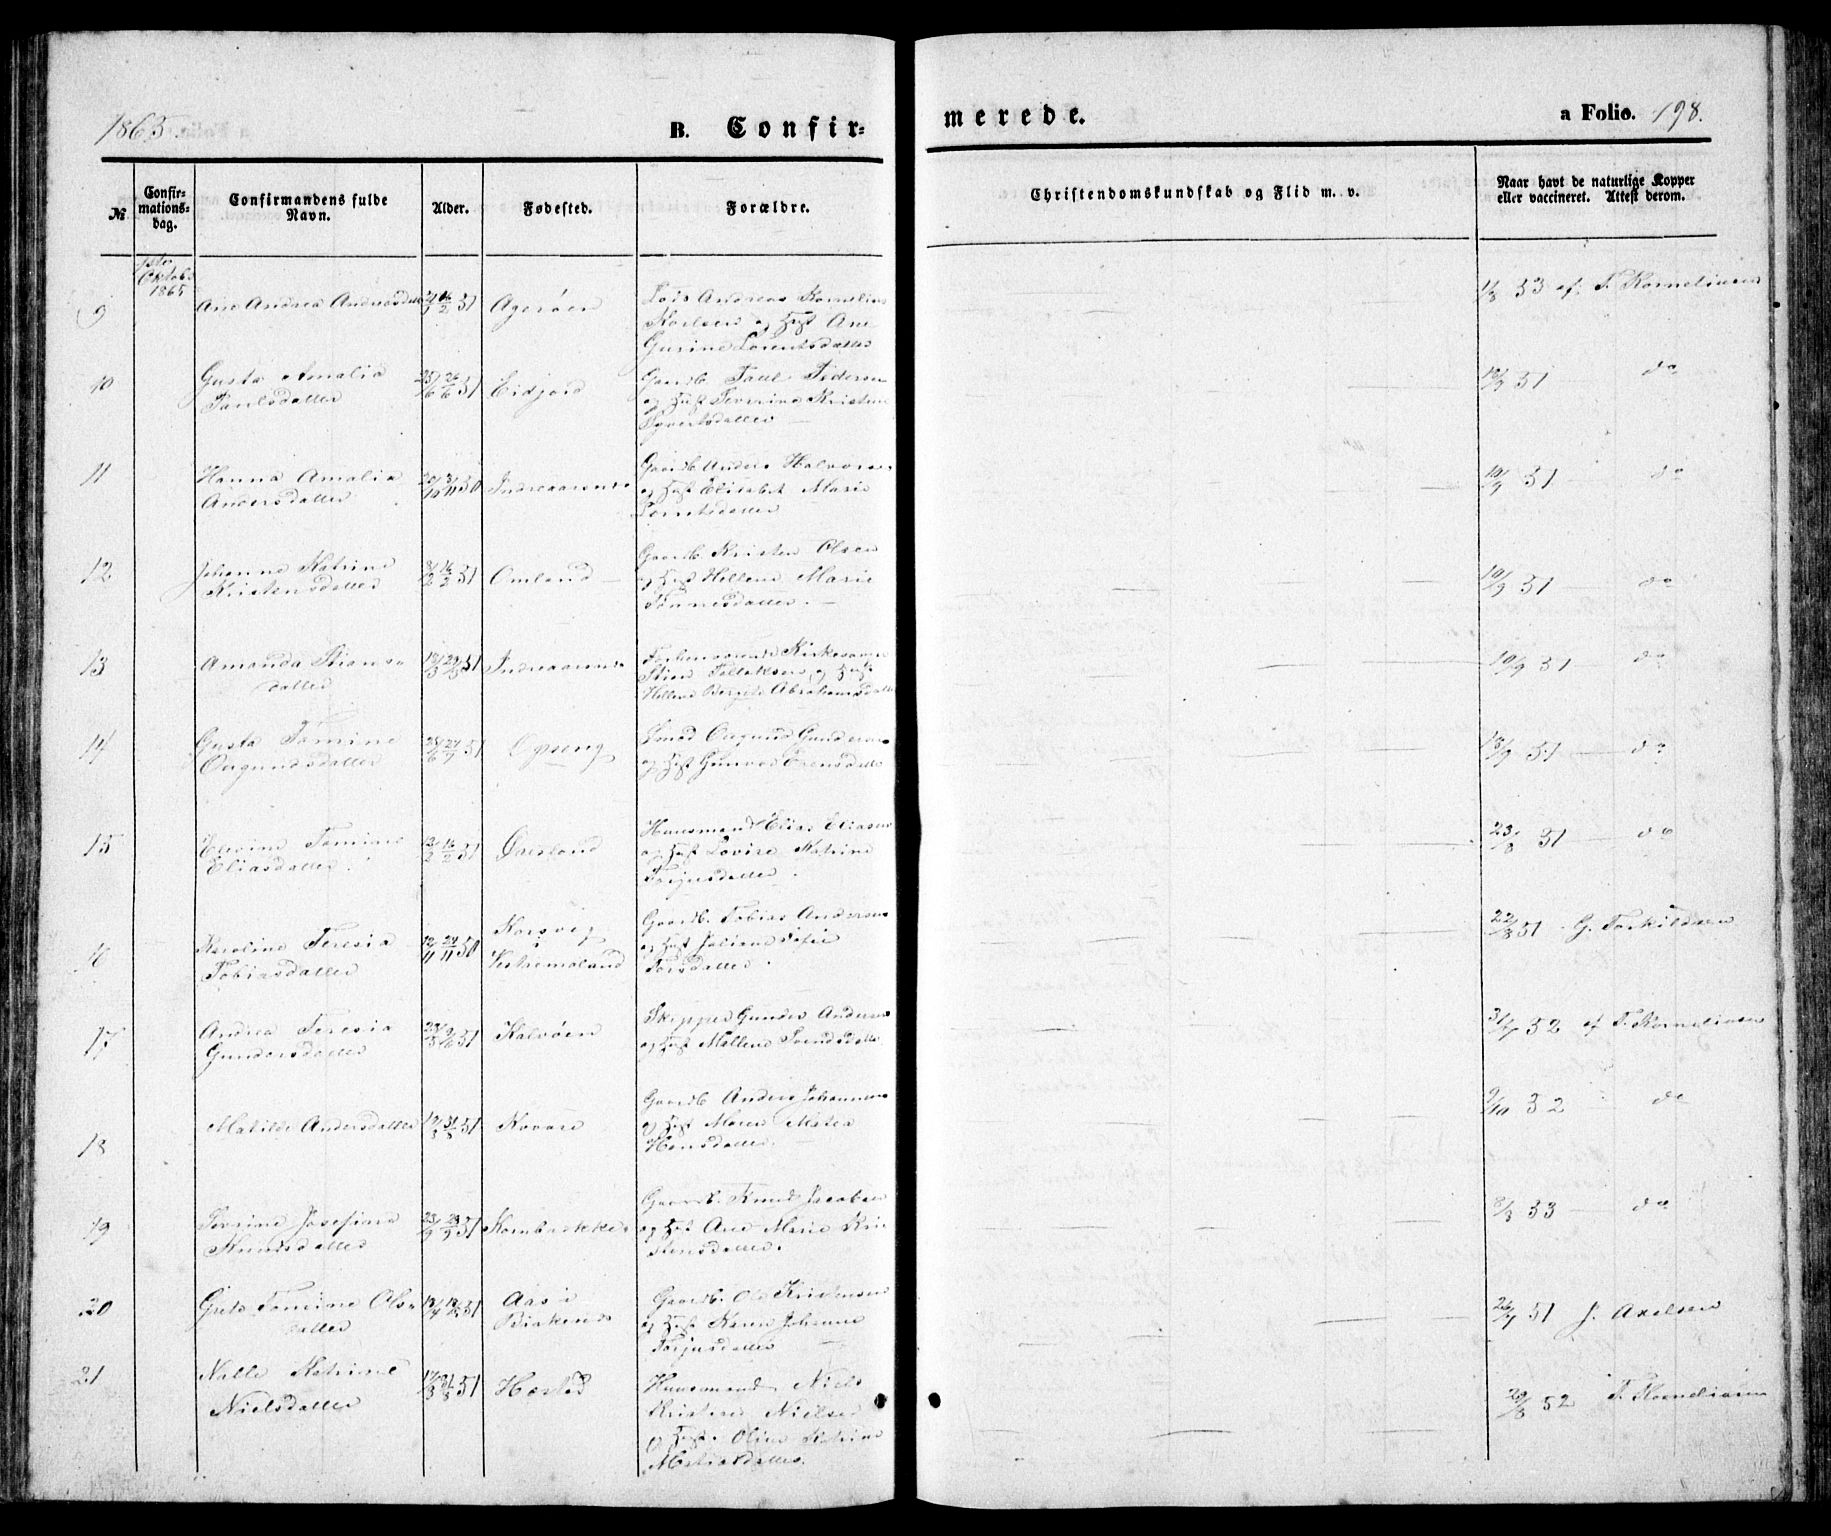 1865.
B. Confir=
merede.
a Folio. 198.
№
Confir=
mations=
dag.
Confirmandens fulde
Navn.
Alder.
Fødested.
Forældre.
Christendomskundskab og Flid m. v.
Naar havt de naturlige Kopper
eller vaccineret. Attest derom.
1ste
Oktob.
1865
9
Ane Andrea Andreasdatter
51
Agerøen
Lods Andreas Kornelius
Karlsen og Hust Ane
Gurine Lorentsdatter
1/8 53 af T. Korneliusen
10
Gusta Amalia
Paulsdatter
51
Eidjord
Gaardb. Paul Pedersen
og Hust Severine Kristine
Syvertsdatter
51 do
11
Hanna Amalia
Andersdatter
50
Indreaarsnes
Gaardb Anders Halvorsen
og Hust Elisabet Marie
Lorentsdatter
10/9 51 do
12
Johanne Katrine
Kristensdatter
51
Omland
Gaardb. Kristen Olsen
og Hust Hellene Marie
Tønnesdatter.
10/9 51 do
13
Amanda Stians=
datter
51
Indreaarsnes
Forhenværende Kirkesanger
Stian Tellefsen og Hust
Hellene Bergite Abrahamsdatter
10/9 51 do
14
Gusta Tomine
Ougundsdatter
51
Opseng
Smed Ougund Gundersen
og Hust Gunvor Evensdatter
18/9 51 do
15
Elevine Tomine
Eliasdatter.
12/2 16/2 51
Huusmand Elias Eliasen
og Hust Lovise Katrine
Torjusdatter.
23/8 51 do
16
Karoline Teresia
Tobiasdatter
12/11 24/11 50
Korsvig
i
Vestremoland
Gaardb. Tobias Andersen
og Hust Juliane Sofie
Torsdatter.
22/8 51 G. Torkildsen
17
Andrea Teresia
Gundersdatter
51
Kalvøen
Skipper Gunder Andersen
og Hust Mallene Svendsdatter
31/7 52 af T. Korneliusen
18
Matilde Andersdatter
51
Kovaae
Gaardb Anders Johannesen
og Hust Maren Matea
Hansdatter.
9/10 52 do
19
Severine Josefine
Knudsdatter
23/9 29/9 51
Kornbrække
Gaardb. Knud Jacobsen
og Hust Ane Marie Kri
stensdatter.
8/8 53 do
20
Grete Tomine Ols=
datter
51
Aas i
Birkenes
Gaardb. Ole Kristensen
og Hust Karen Johanne
Torjusdatter
26/7 51 J. Axelsen
21
Nille Katrine
Nielsdatter
51
Hæstad
Huusmand Niels
Kristian Nielsen
og Hust. Oline Katrine
Matiasdatter.
29/8 52 T. Korneliusen